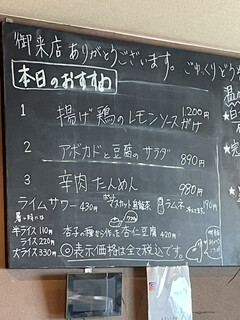 御来店ありがとうございます。ごゆっくりどう
本日のおすすめ
1 揚げ鶏のレモンソースがけ 1,200円
2 アボカドと豆腐のサラダ 890円
3 辛肉たんめん 980円
ライムサワー 430円 マスカット烏龍茶 ラムネ 190円
半ライス 110円 杏子の種から作った杏仁豆腐 420円
ライス 220円
大ライス 330円 ◎表示価格は全て税込です。